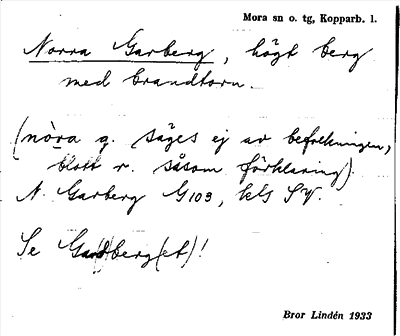 Mora sn o. tg, Kopparb. l.
Norra Garberg, högt berg
med brandtorn.
(nòra g. säges ej av befolkningen,
blott r. såsom förklaring)
N. Garberg G103, kls SV.
Se Gardberg(et)!
Bror Lindén 1933